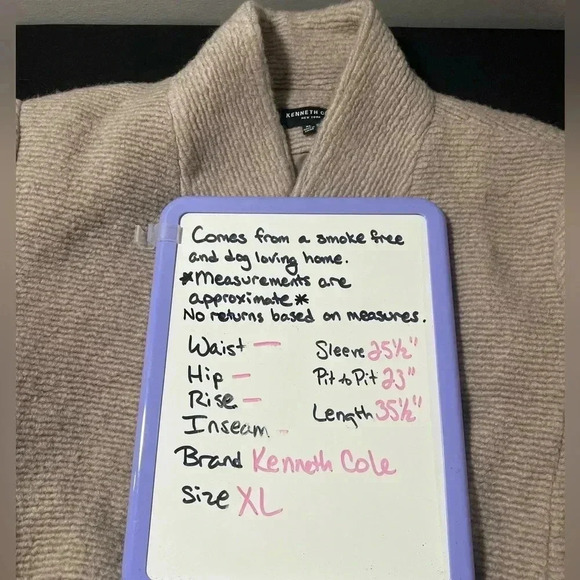 KENNETH
NEW YORK
XL
Comes from a smoke free
and dog loving home.
*Measurements are
approximate*
No returns based on measures.
Waist —
Hip —
Rise —
Inseam -
Sleeve 25½"
Pit to Pit 23"
Length 35½"
Brand Kenneth Cole
Size XL